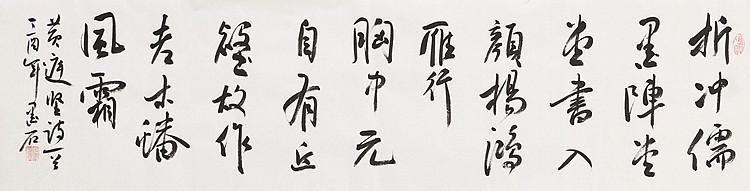 折冲儒
墨陣堂
堂書入
顔楊鴻
雁行
胸中元
自有丘
壑故作
老木蟠
風霜
黄庭坚詩一首
丁酉年墨石